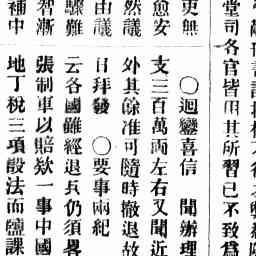 堂司各官皆用其所習已不致為
更無
愈安
然議
由議
驟難
智漸
補中
〇迴鑾喜信 聞辦理
支三百萬兩左右又聞近
外其餘准可隨時撤退故
日拜發 〇要事兩紀
云各國雖經退兵仍須畧
張制軍以賠欵一事中國
地丁稅三項設法而鹽課